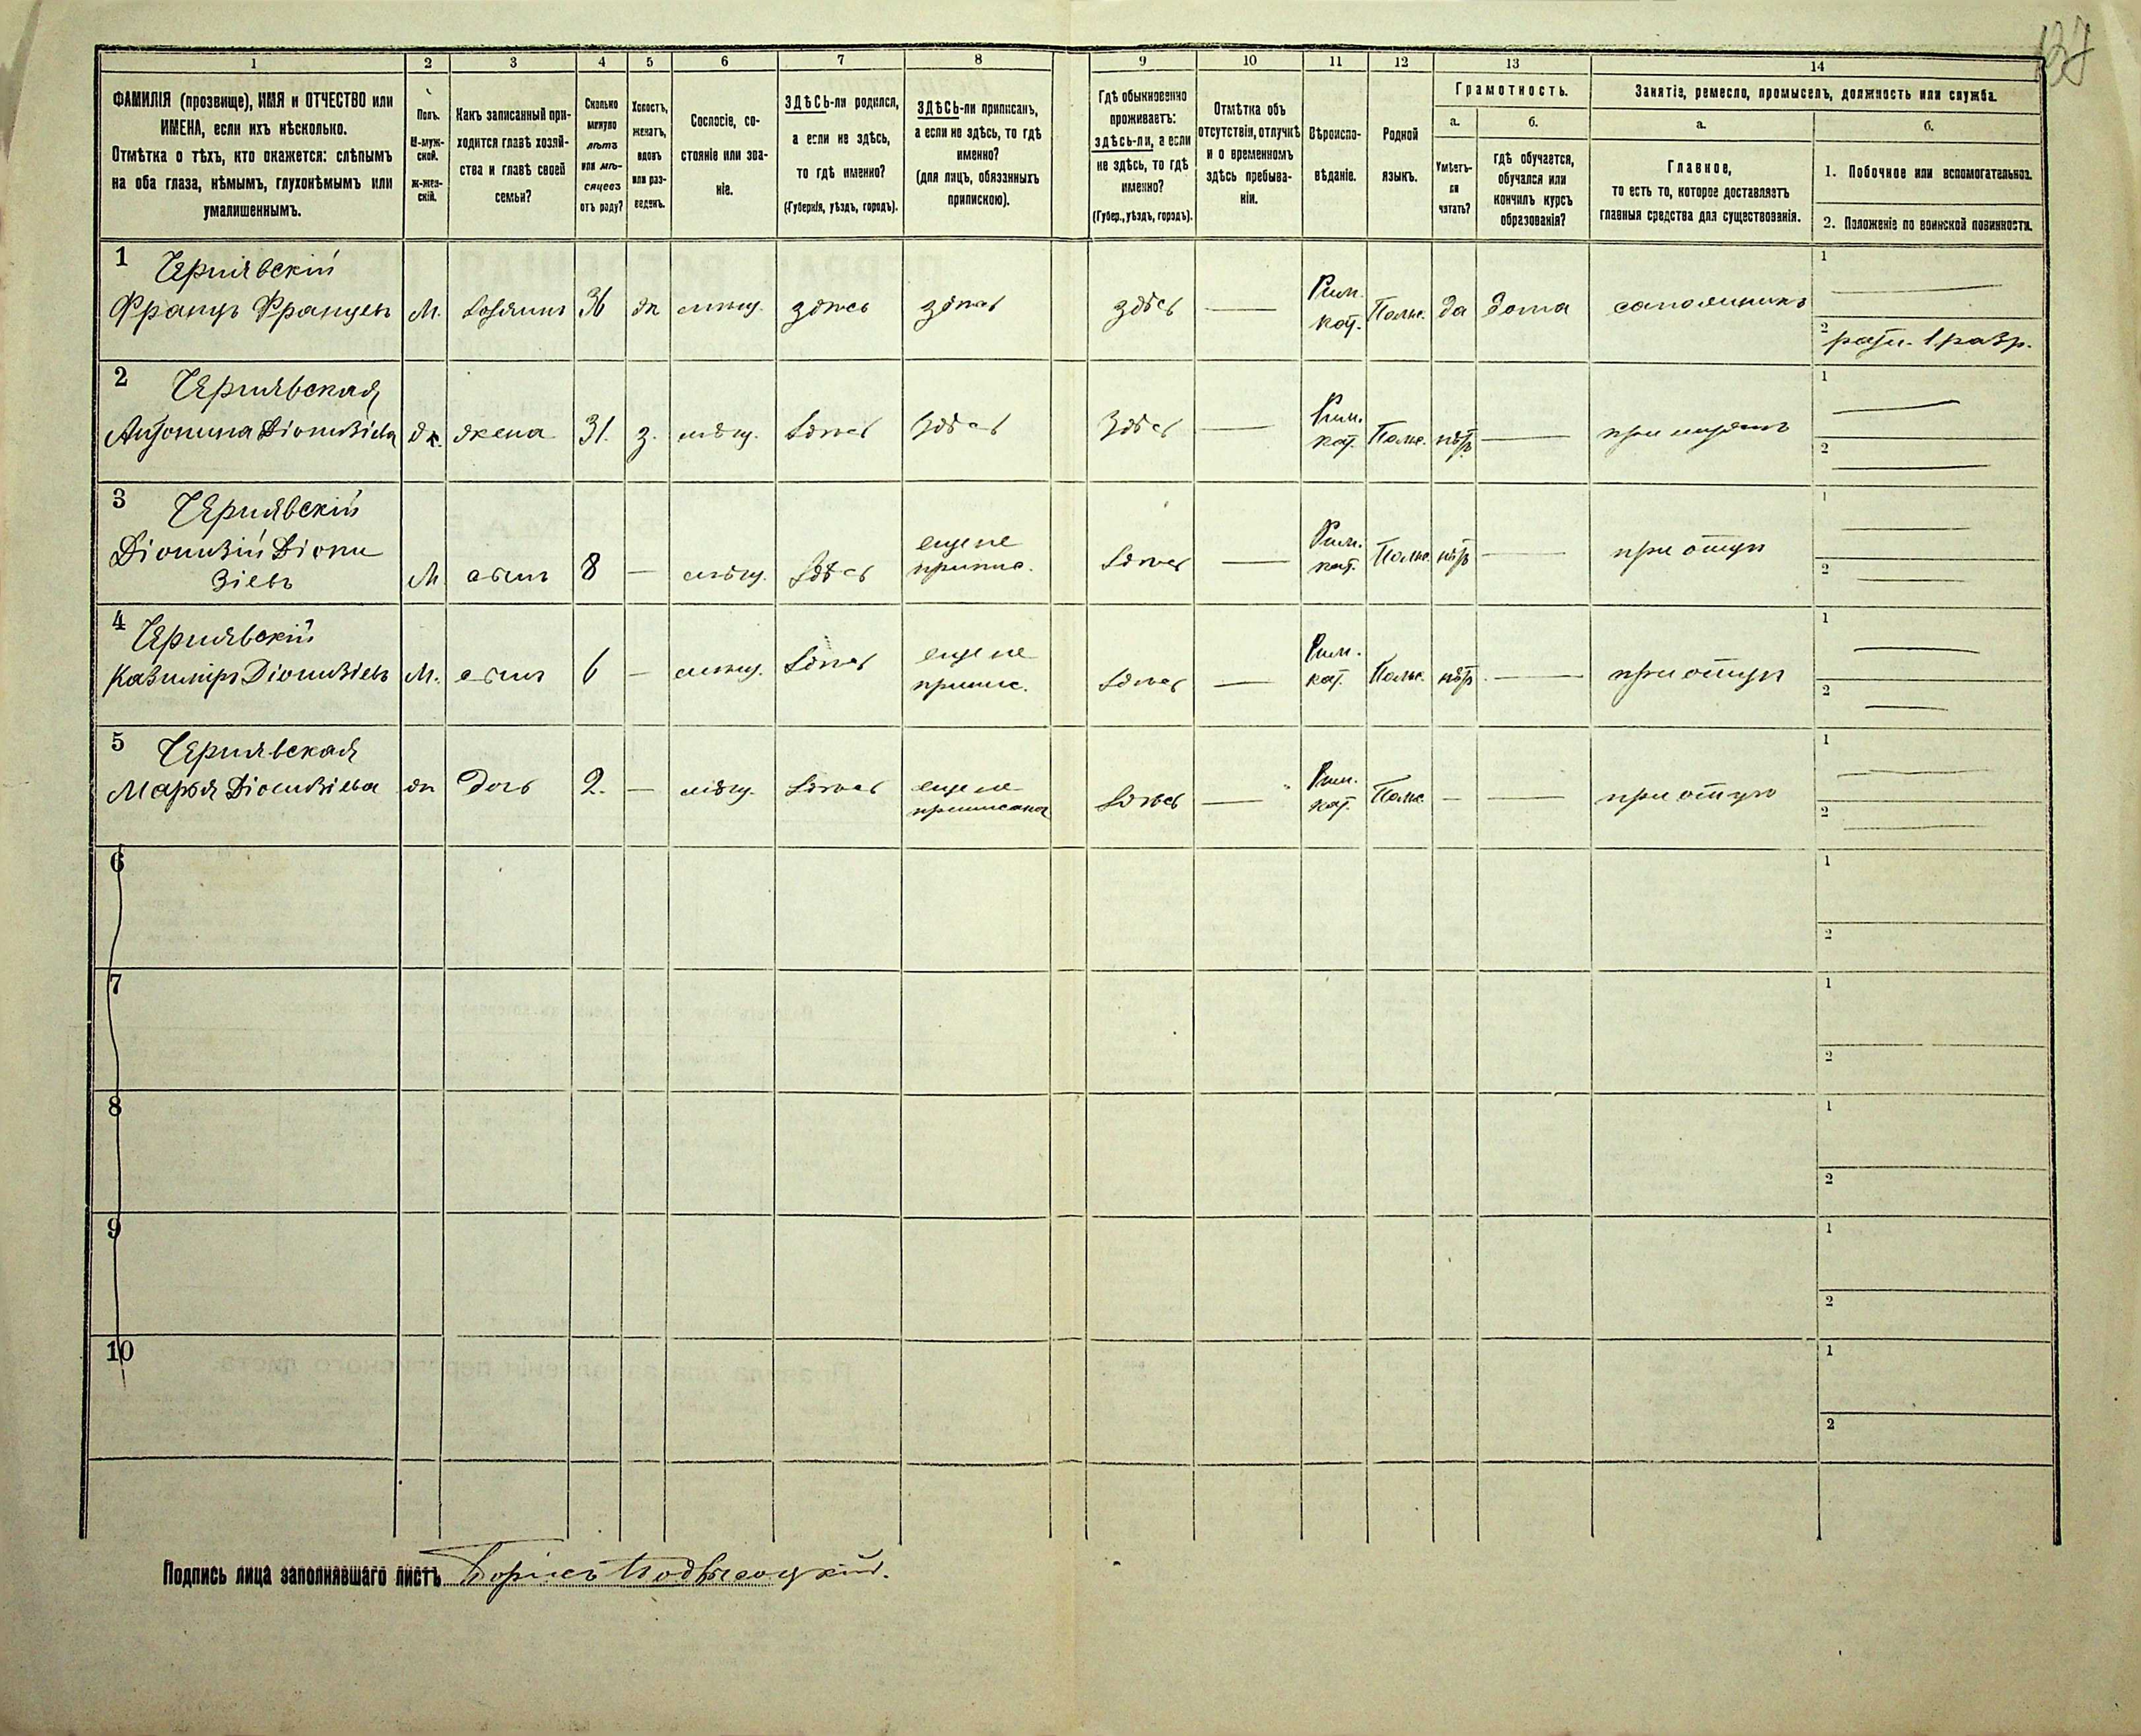 127
1 2 3 4 5 6 7 8 9 10 11 12 13 14
ФАМИЛІЯ (прозвище), ИМЯ и ОТЧЕСТВО или
ИМЕНА, если ихъ нѣсколько.
Отмѣтка о тѣхъ, кто окажется: слѣпымъ
на оба глаза, нѣмымъ, глухонѣмымъ или
умалишеннымъ.
Полъ.
М-муж-
ской.
Ж-жен-
скій.
Какъ записанный при-
ходится главѣ хозяй-
ства и главѣ своей
семьи?
Сколько
минуло
лѣтъ
или мѣ-
сяцевъ
отъ роду?
Холостъ,
женатъ,
вдовъ
или раз-
веденъ.
Сословіе, со-
стояніе или зва-
ніе.
ЗДѢСЬ-ли родился,
а если не здѣсь,
то гдѣ именно?
(Губернія, уѣздъ, городъ).
ЗДѢСЬ-ли приписанъ,
а если не здѣсь, то гдѣ
именно?
(для лицъ, обязанныхъ
припискою).
Гдѣ обыкновенно
проживаетъ:
здѣсь-ли, а если
не здѣсь, то гдѣ
именно?
(Губер., уѣздъ, городъ).
Отмѣтка объ
отсутствіи, отлучкѣ
и о временномъ
здѣсь пребыва-
ніи.
Вѣроиспо-
вѣданіе.
Родной
языкъ.
Грамотность.
а.
Умѣетъ-
ли
читать?
б.
гдѣ обучается,
обучался или
кончилъ курсъ
образованія?
Занятіе, ремесло, промыселъ, должность или служба.
а.
Главное,
то есть то, которое доставляетъ
главныя средства для существованія.
б.
1. Побочное или вспомогательное.
2. Положеніе по воинской повинности.
1 Чернявскій
Францъ Францевъ М. хозяинъ 36 ж мѣщ. здѣсь здѣсь здѣсь — Рим. кат. Польс. да дома сапожникъ
1 —
2 ратн. 1 разр.
2 Чернявская
Антонина Діонизіева ж. жена 31. з. мѣщ. здѣсь здѣсь здѣсь — Рим. кат. Польс. нѣтъ — при мужѣ
1 —
2 —
3 Чернявскій
Діонизій Діони
зіевъ М сынъ 8 — мѣщ. здѣсь еще не припис. здѣсь — Рим. кат. Польс. нѣтъ — при отцѣ
1 —
2 —
4 Чернявскій
Казиміръ Діонизіевъ М. сынъ 6 — мѣщ. здѣсь еще не припис. здѣсь — Рим. кат. Польс. нѣтъ — при отцѣ
1 —
2 —
5 Чернявская
Марья Діонизіева ж дочь 2. — мѣщ. здѣсь еще не приписана здѣсь — Рим. кат. Польс. — — при отцѣ
1 —
2 —
6
1
2
7
1
2
8
1
2
9
1
2
10
1
2
Подпись лица заполнявшаго листъ Борисъ Подвысоцкій.